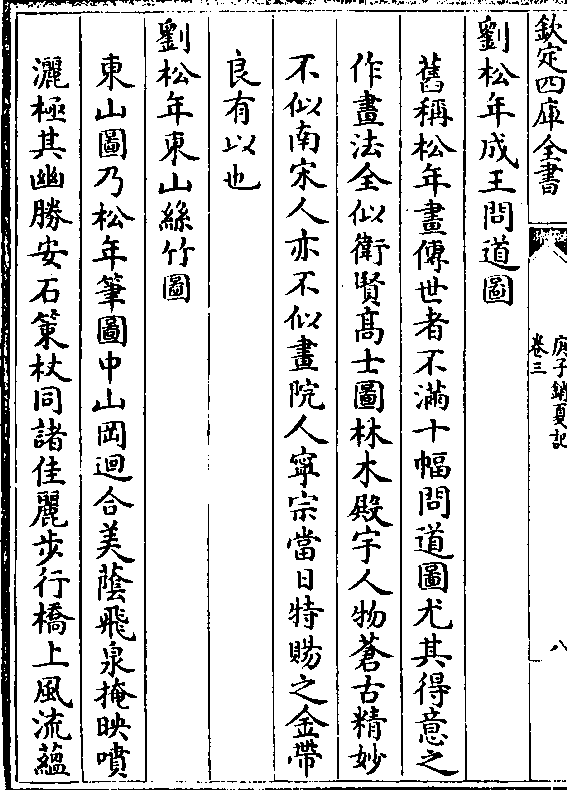 欽定四庫全書
庚子銷夏記
卷三
八
劉松年成王問道圖
舊稱松年畫傳世者不滿十幅問道圖尤其得意之
作畫法全似衛賢高士圖林木殿宇人物蒼古精妙
不似南宋人亦不似畫院人寧宗當日特賜之金帶
良有以也
劉松年東山絲竹圖
東山圖乃松年筆圖中山岡迴合美蔭飛泉掩映噴
灑極其幽勝安石策杖同諸佳麗步行橋上風流蘊